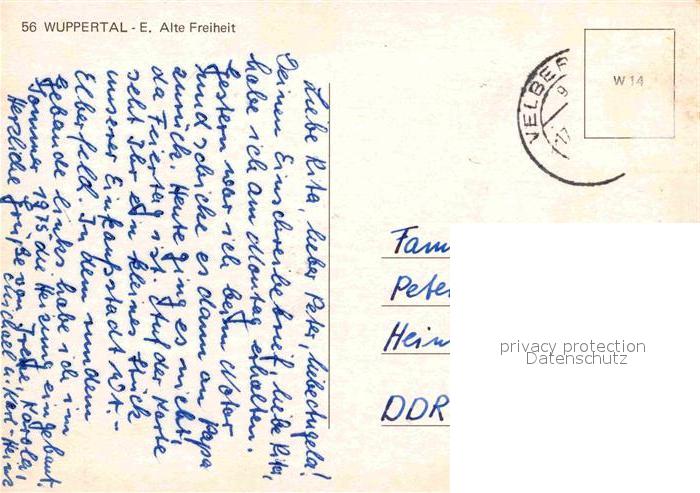 56 WUPPERTAL - E. Alte Freiheit
Liebe Rita, lieber Peter, liebe Angela!
Deinen Einschreibebrief, liebe Rita,
habe ich am Montag erhalten.
Gestern war ich beim Notar
und schicke es dann an Papa
zurück. Heute ging es nicht,
da Feiertag ist. Auf der Karte
seht Ihr ein kleines Stück
unserer Einkaufsstadt W. -
Elberfeld. In dem runden
Gebäude links habe ich im
Sommer 1975 die Heizung eingebaut.
Herzliche Grüße von Irene, Karola,
Michael u. Karl-Heinz
VELBER
9
-17
W 14
Fam
Peter
Hein
DDR
privacy protection
Datenschutz